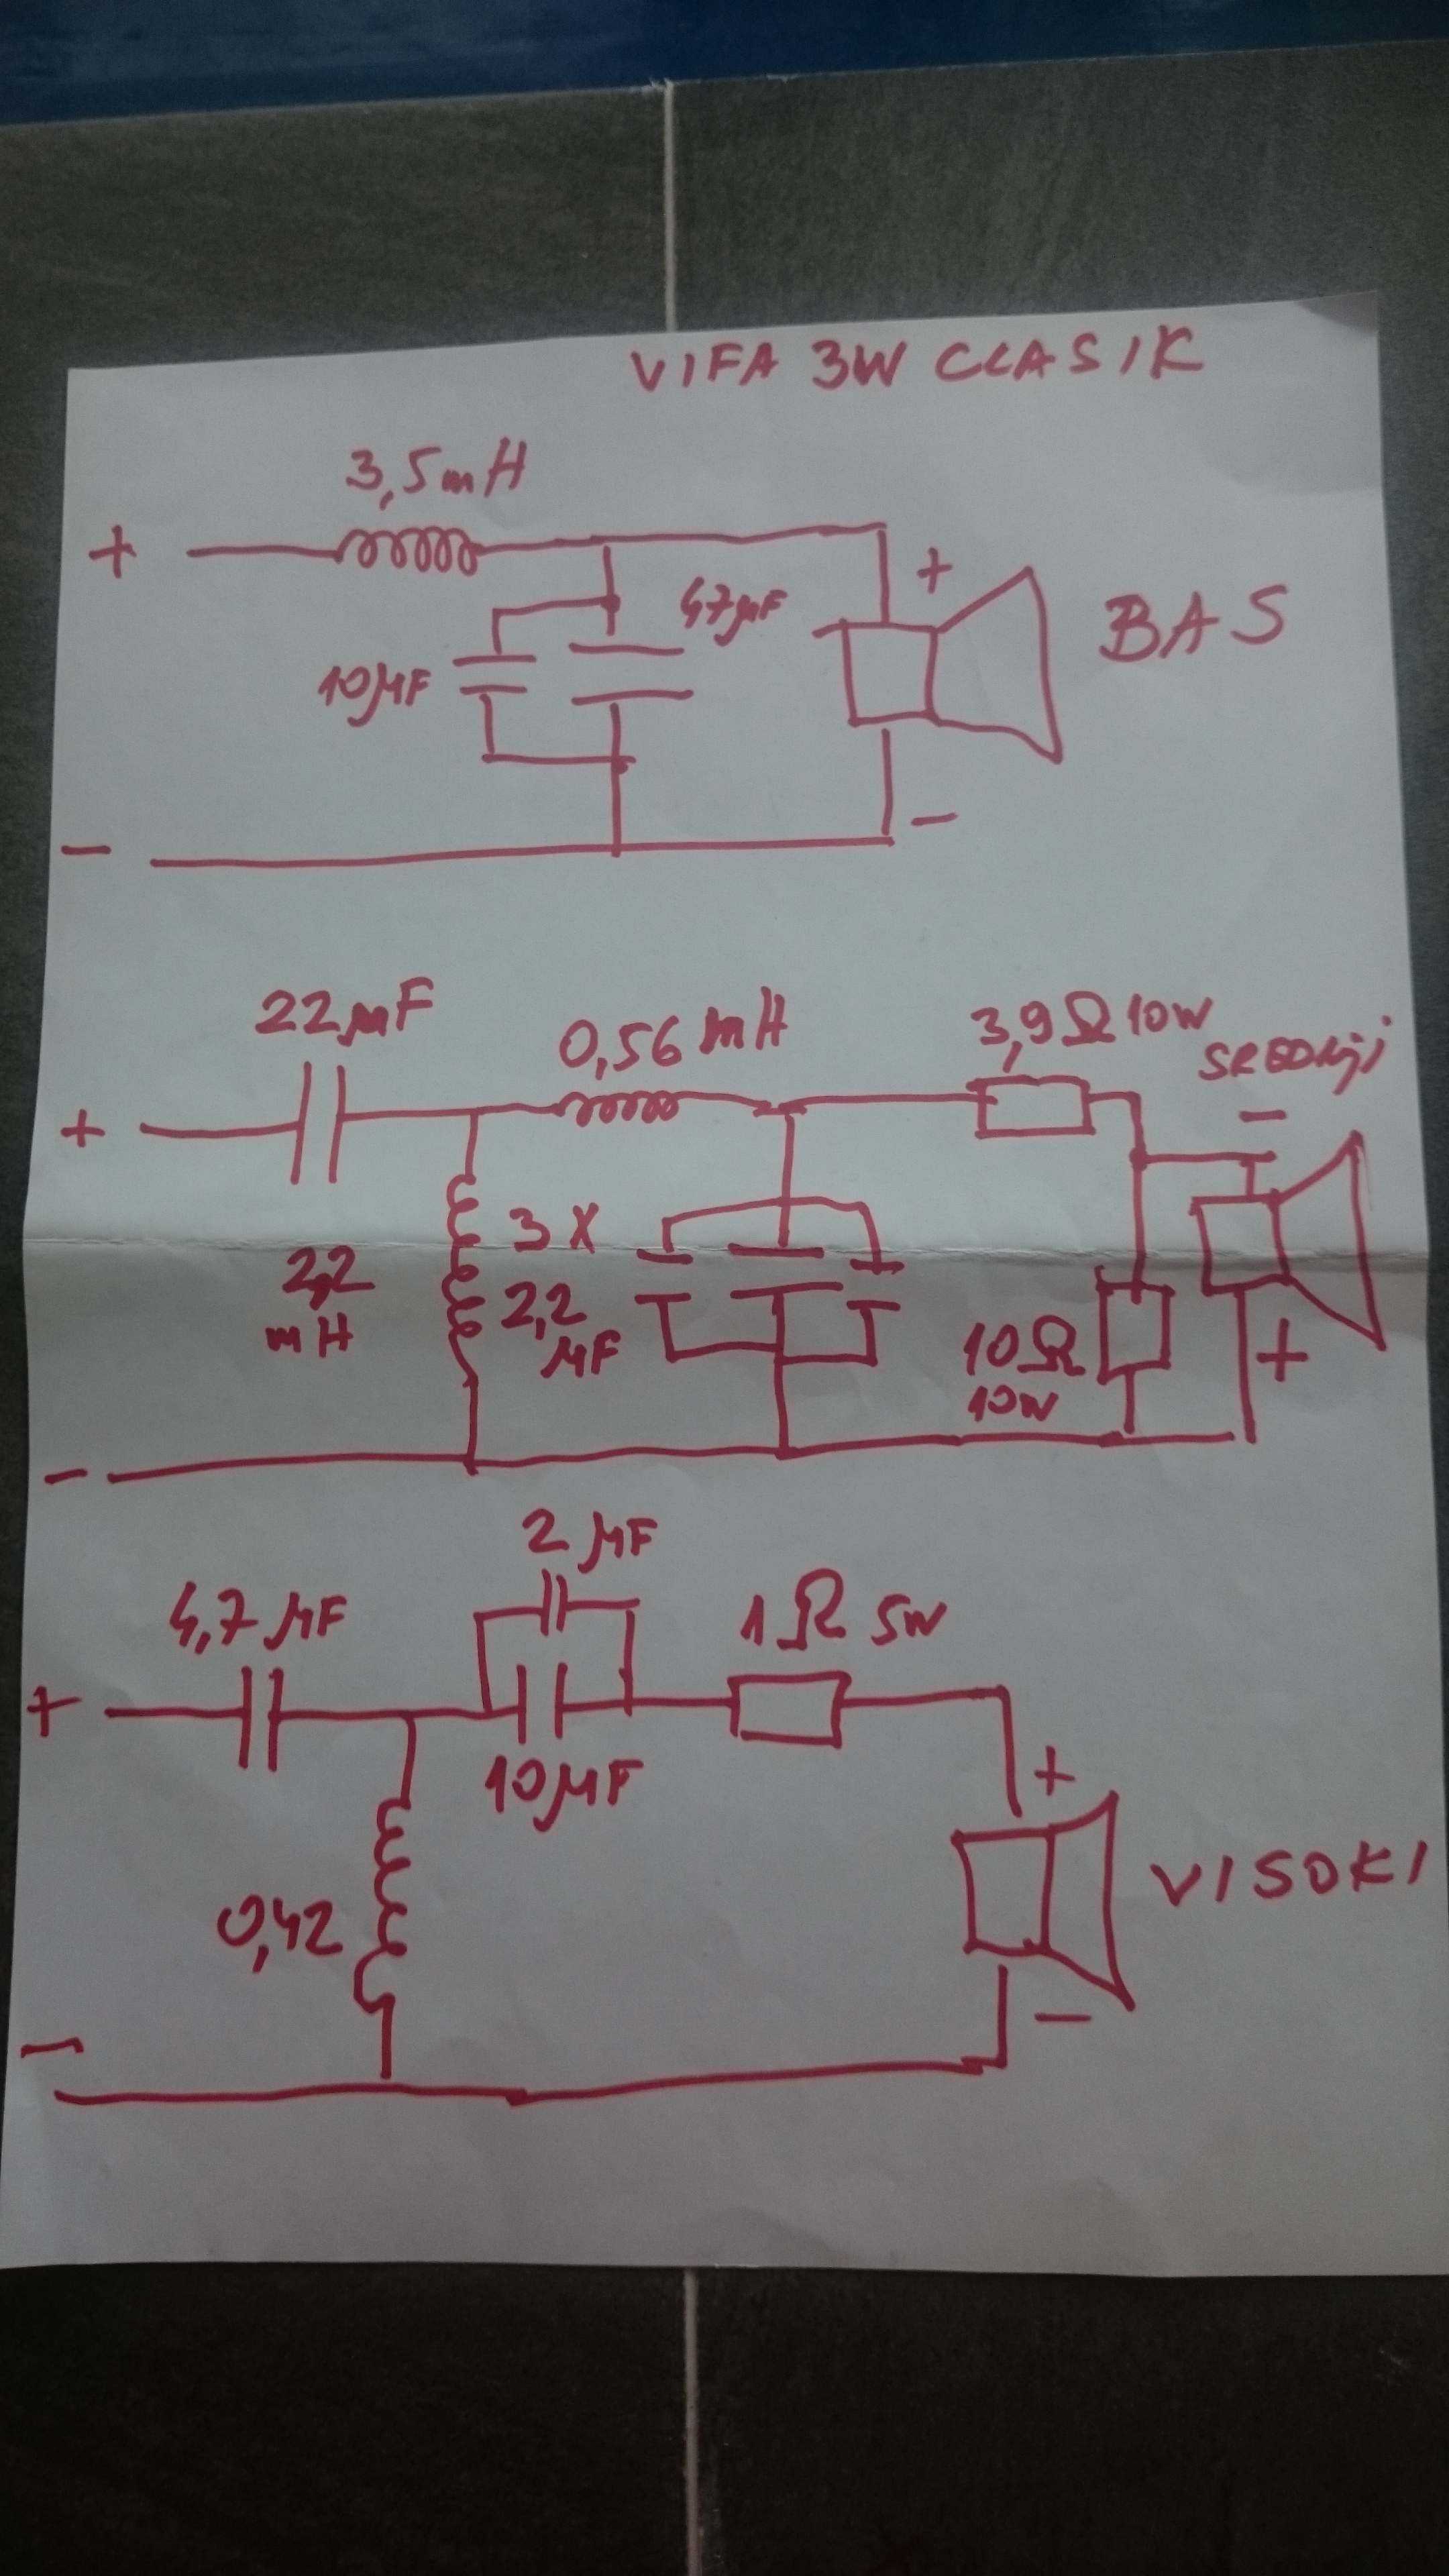 VIFA 3W CLASIK
3,5mH
+
+
47µF
BAS
10µF
-
-
22µF
0,56mH
3,9Ω 10W
SREDNji
-
+
3X
2,2
mH
2,2
µF
10Ω
10W
+
-
2µF
4,7µF
1Ω 5W
+
10µF
+
0,42
VISOKI
-
-